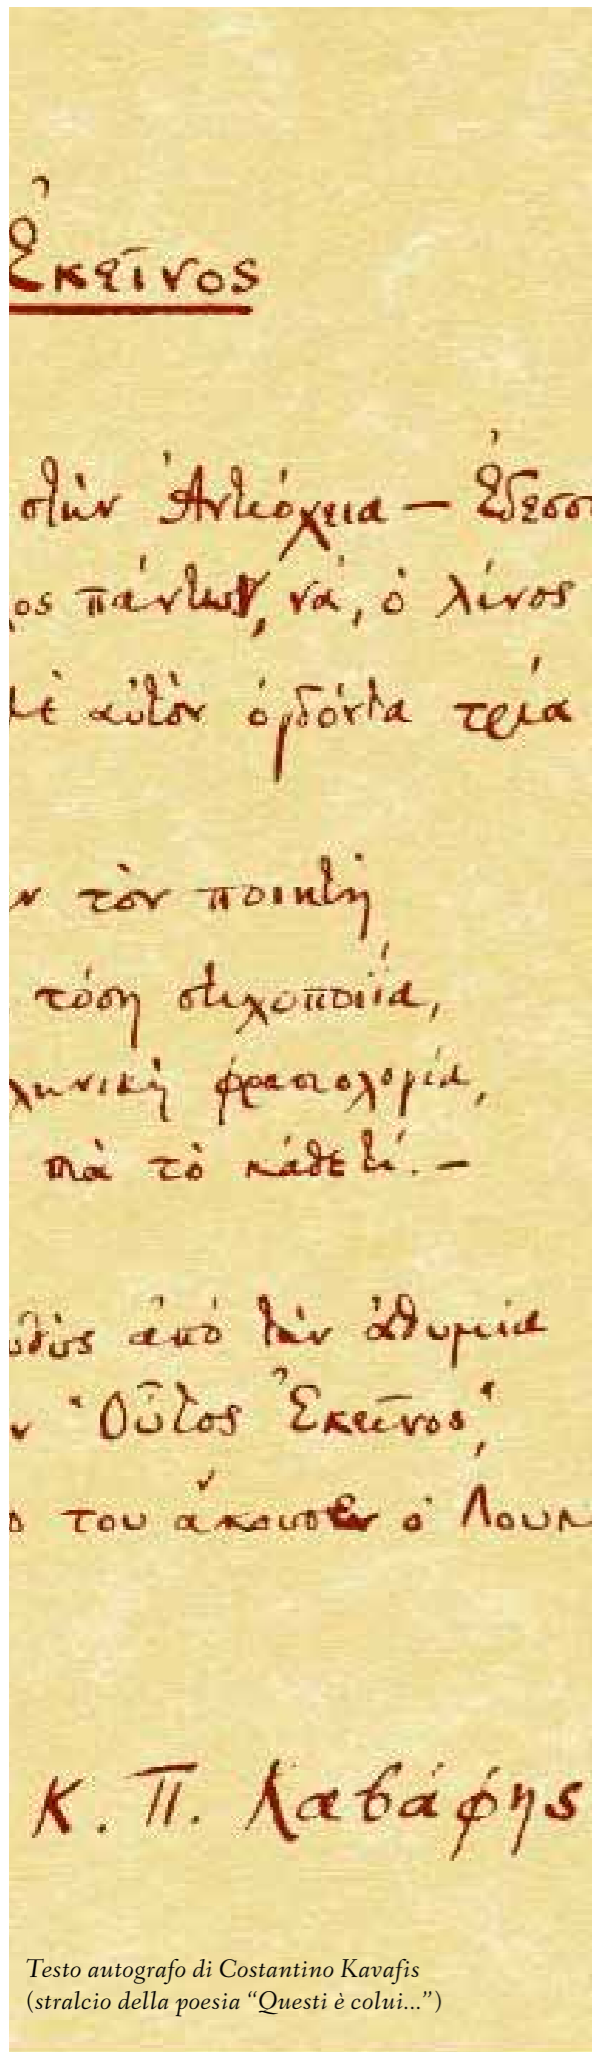 Ἐκεῖνος
στὴν Ἀντιόχεια — Ἐδεσσ
ος πάντων, νά, ὁ λίνος
ὲ αὐτὸν ὀγδόντα τρία
ν τὸν ποιητὴ
τόση στιχοποιΐα,
ληνικὴ φρασιολογία,
πιὰ τὸ κάθε τί. —
υθὺς ἀπὸ τὴν ἀθυμία
ν “Οὗτος Ἐκεῖνος„
ο του ἄκουσεν ὁ Λουκ
Κ. Π. Καβάφης
Testo autografo di Costantino Kavafis
(stralcio della poesia “Questi è colui...”)